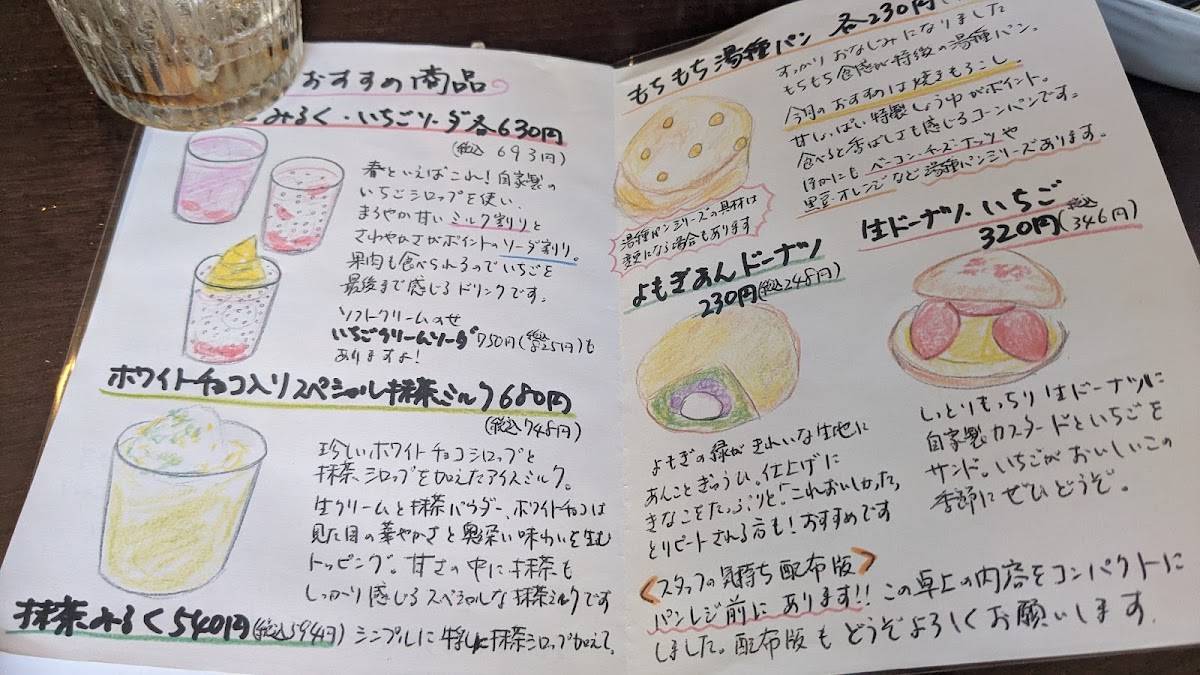 おすすめ商品
みるく・いちごソーダ各630円
(税込693円)
春といえばこれ!自家製の
いちごシロップを使い、
まろやか甘いミルク割りと
さわやかさがポイントのソーダ割り。
果肉も食べられるのでいちごを
最後まで感じるドリンクです。
ソフトクリームのせ
いちごクリームソーダ750円(税込825円)も
ありますよ!
ホワイトチョコ入りスペシャル抹茶ミルク680円
(税込748円)
珍しいホワイトチョコシロップと
抹茶シロップを加えたアイスミルク。
生クリームと抹茶パウダー、ホワイトチョコは
見た目の華やかさと奥深い味わいを生む
トッピング。甘さの中に抹茶も
しっかり感じるスペシャルな抹茶ミルクです
抹茶みるく540円(税込594円)シンプルに牛乳に抹茶シロップ加えて。
もちもち湯種パン 各230円
すっかりおなじみになりました
もちもち食感が特徴の湯種パン。
今月のおすすめは焼きもろこし。
甘じょっぱい特製しょうゆがポイント。
食べると香ばしさも感じるコーンパンです。
ほかにもベーコンチーズ・ナッツや
黒豆・オレンジなど湯種パンシリーズあります。
湯種パンシリーズの具材は
変更になる場合もあります
よもぎあんドーナツ
230円(税込248円)
よもぎの緑がきれいな生地に
あんことぎゅうひ。仕上げに
きなこをたっぷりと!「これおいしかった」
とリピートされる方も!おすすめです
生ドーナツ・いちご
320円(税込346円)
しっとりもっちり生ドーナツに
自家製カスタードといちごを
サンド。いちごがおいしいこの
季節にぜひどうぞ。
<スタッフの気持ち配布版>
パンレジ前にあります!!この卓上の内容をコンパクトに
しました。配布版もどうぞよろしくお願いします